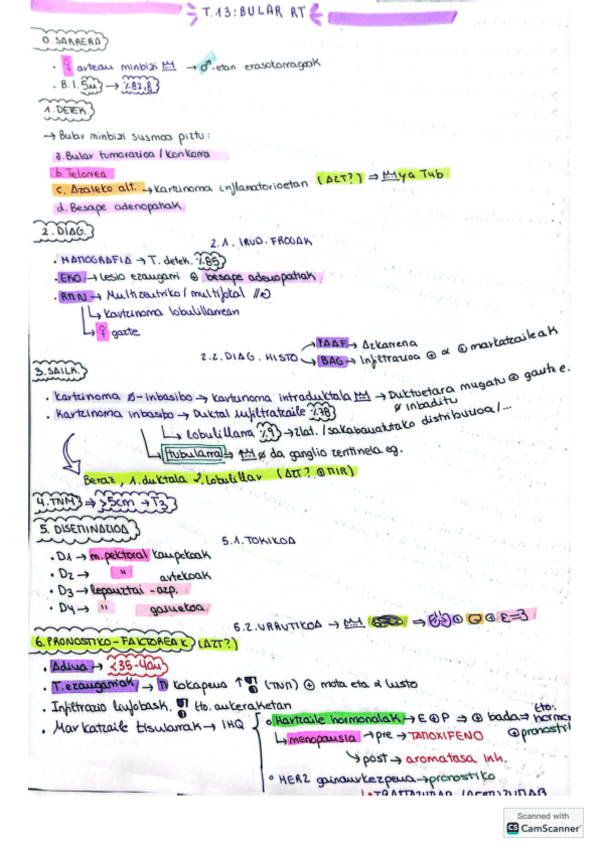 T.13: BULAR RT
0. SARRERA
♀ arteau minbizi → ♂-etan erasotorragoak
B.I. 5u → %82,8
1. DETEK.
→ Bular minbizi susmoa piztu:
a. Bular tumorazioa / konkorra
b. Telorrea
c. Azaleko alt. → Kartzinoma inflamatorioetan (AZT?) ⇒ ya Tub
d. Besape adenopatiak
2. DIAG.
2.1. IRUD. FROGAK
• MAMOGRAFIA → T. detek. %85
• EKO → Lesio ezaugarri ⊕ besape adenopatiak
• RMN → Multizentriko / multifokal
↳ Kartzinoma lobulillarrean
↳ ♀ gazte
2.2. DIAG. HISTO
PAAF → Azkarrena
BAG → Infiltrazioa ⊕ α ⊕ markatzaileak
3. SAILK.
• Kartzinoma Ø-inbasibo → Kartzinoma intraduktala → Duktuetara mugatu ⊕ gaitz e.
Ø inbaditu
• Kartzinoma inbasibo → Duktal infiltratzaile %78
↳ Lobulillarra %9 → 2lat. / sakabanatutako distribuzioa /...
↳ Tubularra → Ø da ganglio zentinela eg.
Beraz, 1. duktala 2. Lobulillar (AZT? ⊕ MIR)
4. TNM ⇒ >5cm → T3
5. DISEMINAZIOA
5.1. TOKIKOA
• D1 → m. pektoral kanpekoak
• D2 → " artekoak
• D3 → lepauztai - azp.
• D4 → " gainekoa
5.2. URRUTIKOA →
6. PRONOSTIKO-FAKTOREAK (AZT?)
• Adina → <35-40u
• T. ezaugarriak → kokapena ↑ (TNM) ⊕ mota eta α lusto
• Infiltrazio linfobask. tto. aukeraketan
• Markatzaile tisularrak → IHQ
Hartzaile hormonalak → E ⊕ P ⇒ ⊕ bada ⇒ tto. hormo
⊕ pronosti
↳ menopausia → pre → TAMOXIFENO
↳ post → aromatasa inh.
HER2 gainaurkezpena → pronostiko
Scanned with
CS CamScanner